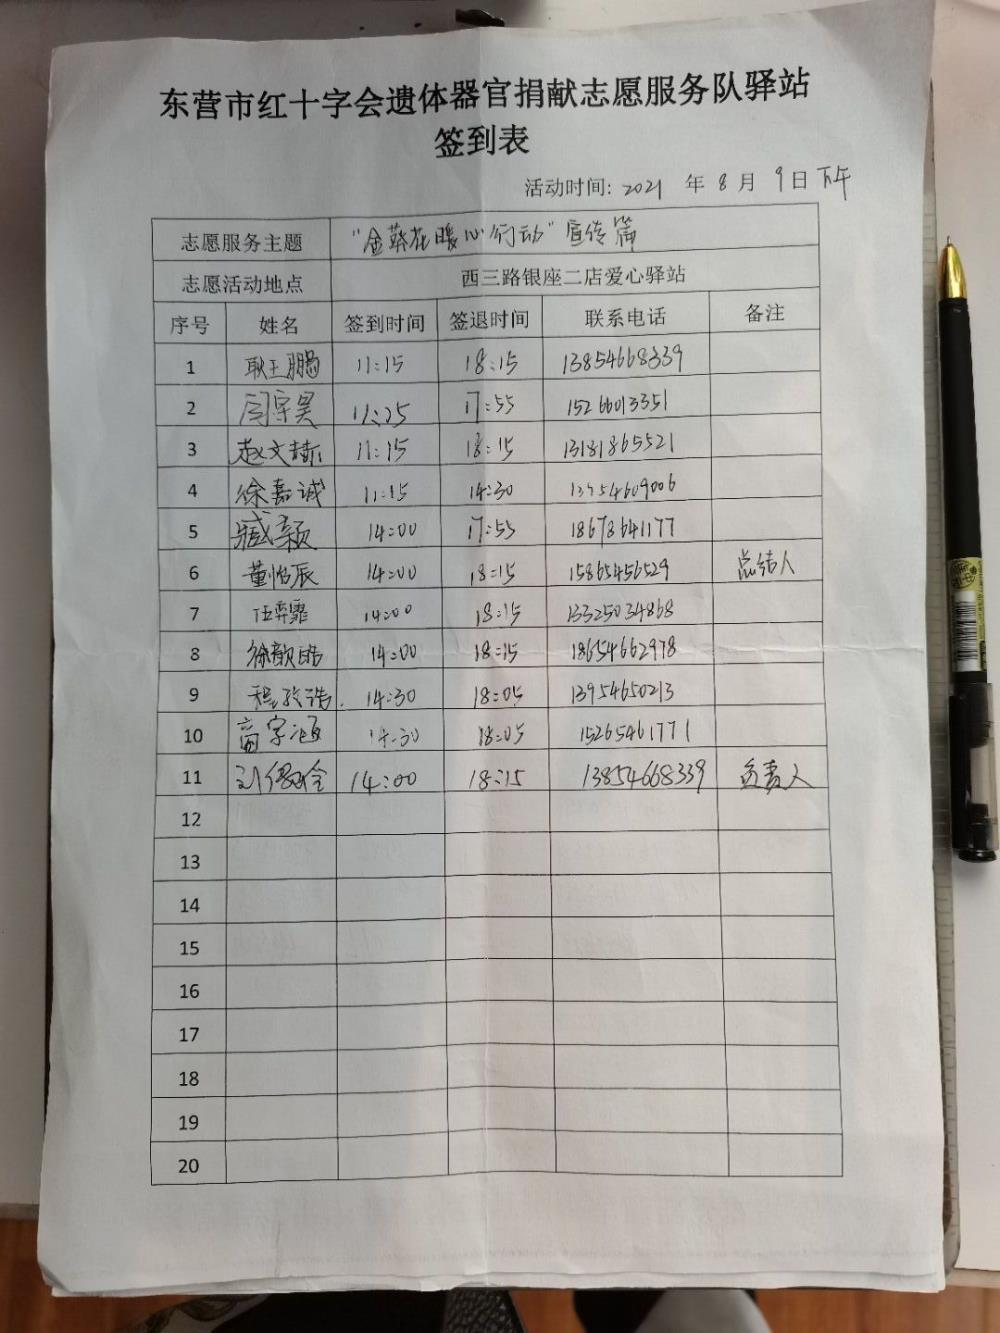 东营市红十字会遗体器官捐献志愿服务队驿站
签到表
活动时间: 2021 年 8 月 9 日 下午
志愿服务主题 "金葵花暖心行动"宣传篇
志愿活动地点 西三路银座二店爱心驿站
序号 姓名 签到时间 签退时间 联系电话 备注
1 耿王鹏 11:15 18:15 13854668339
2 闫宇昊 11:25 17:55 15266013351
3 赵文赫 11:15 18:15 13181865521
4 徐嘉诚 11:15 14:30 13954609006
5 臧颖 14:00 17:55 18678641177
6 董怡辰 14:00 18:15 15865456529 总结人
7 伍霏 14:00 18:15 13325034868
8 徐歆皓 14:00 18:15 18654662978
9 程致浩 14:30 18:05 13954650213
10 商宇涵 14:30 18:05 15265461771
11 14:00 18:15 13854668339 负责人
12
13
14
15
16
17
18
19
20